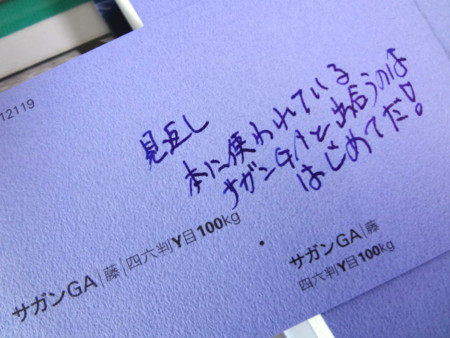 12119
見返し
本に使われている
サガンGAと出合うのは
はじめてだ!
サガンGA|藤|四六判Y目100kg
サガンGA|藤
四六判Y目100kg